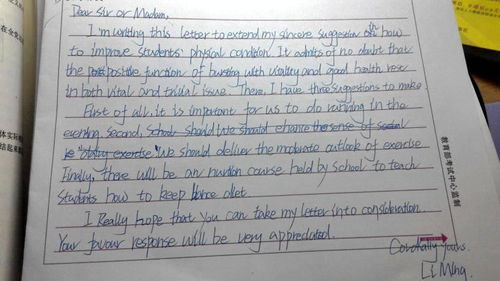 Dear Sir or Madam,
I'm writing this letter to extend my sincere suggestion in how
to improve students' physical condition. It admits of no doubt that
the positive function of bursting with vitality and good health rest
in both vital and trivial issue. There, I have three suggestions to make
First of all, it is important for us to do running in the
evening. Second, School should enhance the sense of
We should deliver the moderate outlook of exercise
Finally, there will be an course held by School to teach
students how to keep diet
I Really hope that you can take my letter into consideration.
Your favour response will be very appreciated.
Cordially yours.
Li Ming.
教育部考试中心监制